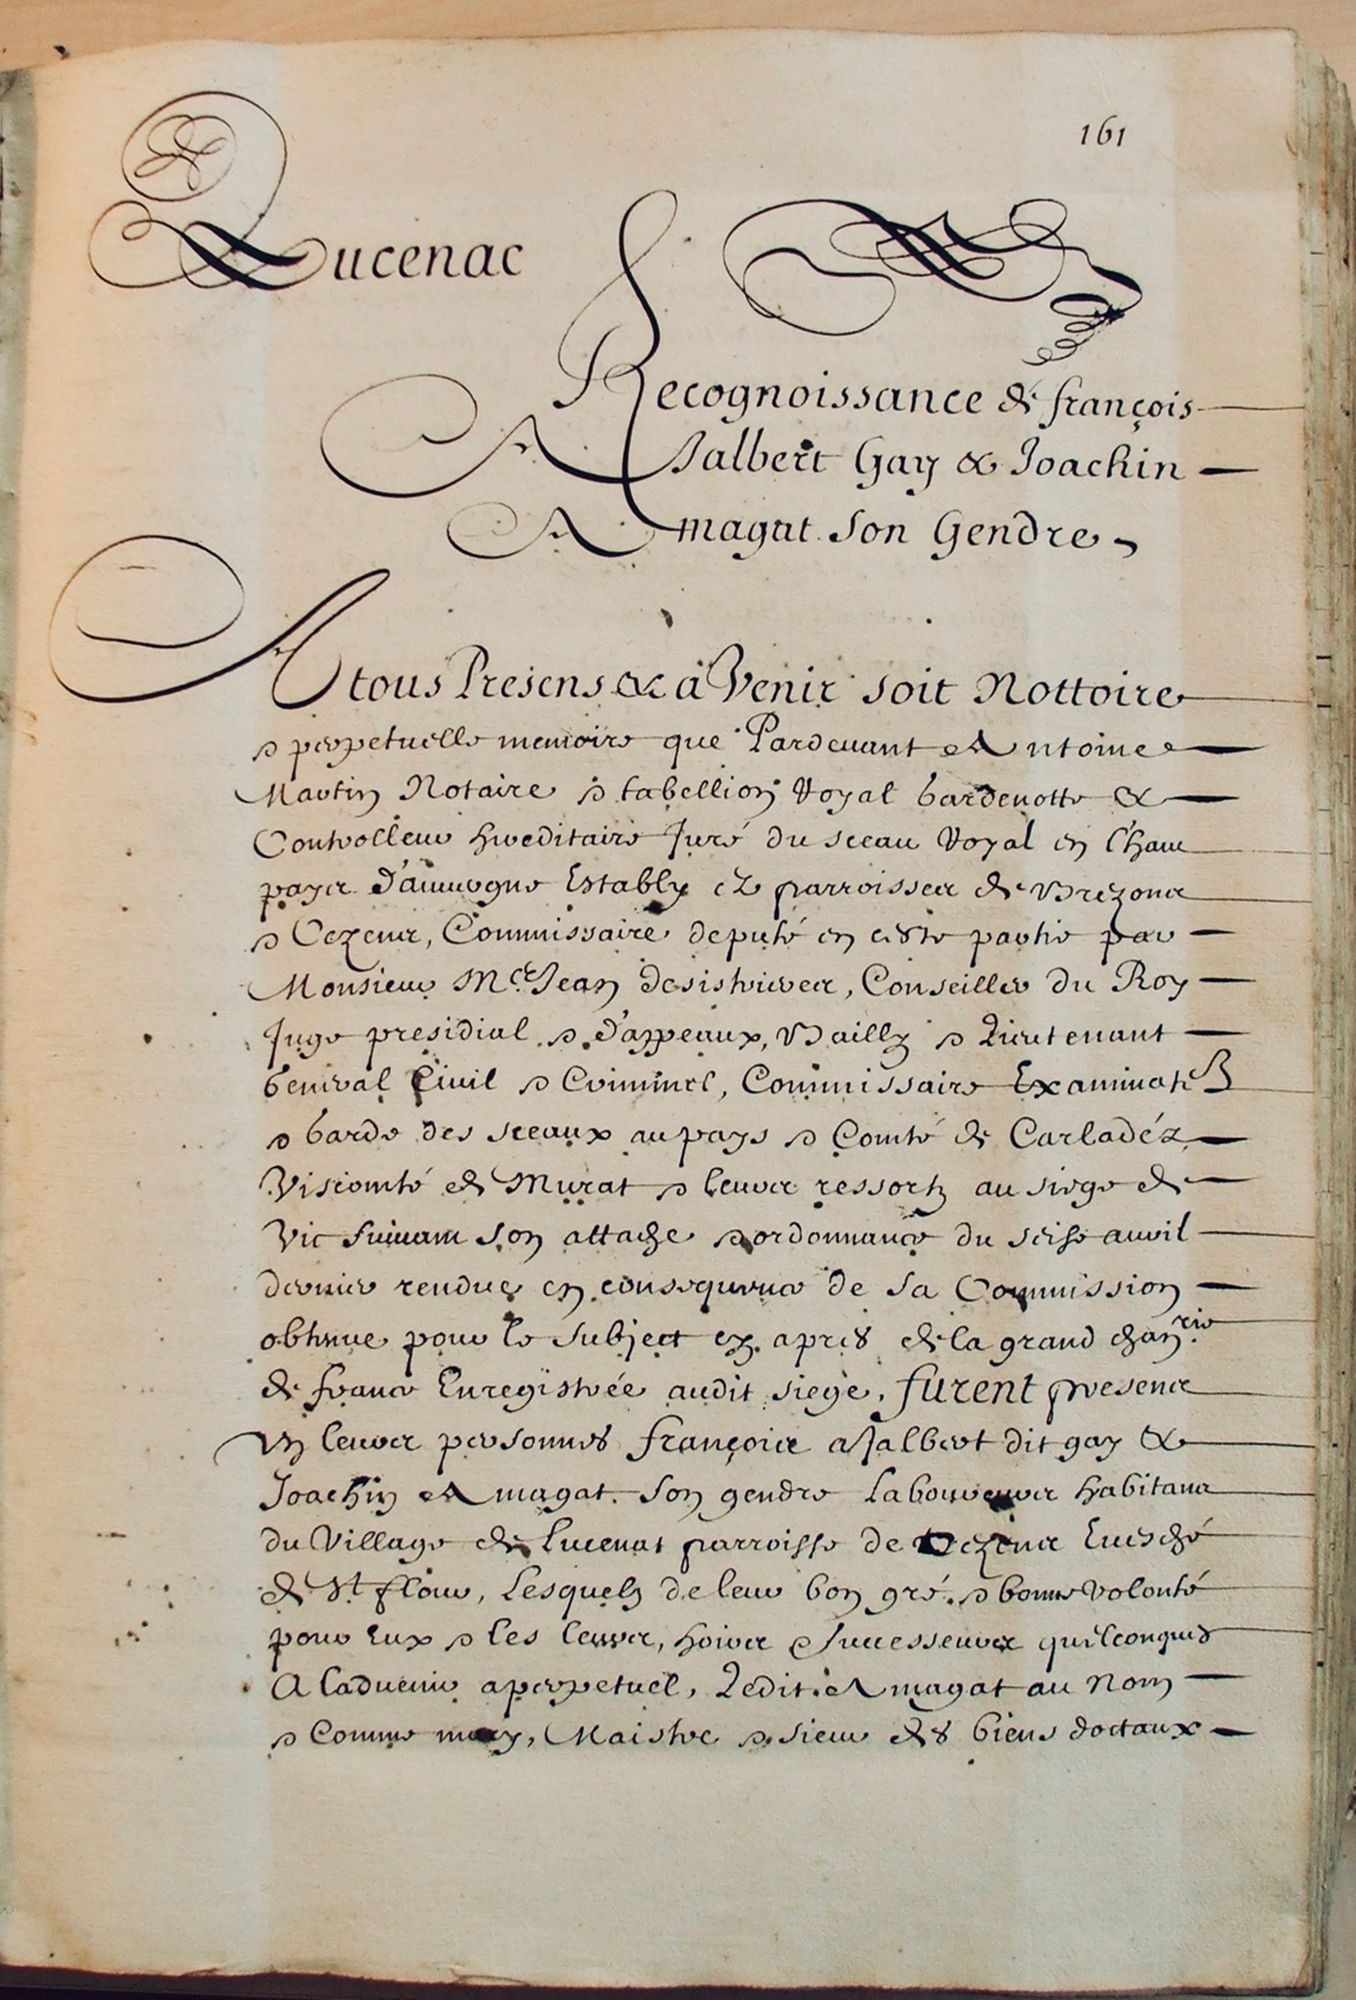 161
Lucenac
Recognoissance de françois
Jalbert Gay & Joachin
Amagat son Gendre
A tous Presens & a Venir soit Nottoire
& perpetuelle memoire que Pardeuant Antoine
Martin Notaire & tabellion Royal Gardenotte &
Controlleur hereditaire Juré du sceau Royal en l'haut
payx d'auuergne Estably ez parroisses de Brezons
& Cezens, Commissaire deputé en ceste partie par
Monsieur Me Jean desistrieres, Conseiller du Roy
Juge presidial & d'appeaux, Bailly & Lieutenant
General Ciuil & Criminel, Commissaire Examinatr
& Garde des sceaux au pays & Comté de Carladéz
Viscomté de Murat & leurs ressortz au siege de
Vic suiuant son attache & ordonnance du seise auril
dernier rendue en consequence de sa Commission
obtenue pour le subject cy apres de la grand chanrie
de france Enregistrée audit siege, furent presens
En leurs personnes françois Jalbert dit gay &
Joachin Amagat son gendre laboureurs habitans
du Village de Lucenat parroisse de Cezens Euesché
de St flour, Lesquelz de leur bon gré & bonne volonté
pour Eux & les leurs, hoirs & successeurs quelconques
A laduenir a perpetuel, Ledit Amagat au nom
& Comme mary, Maistre & sieur des biens doctaux